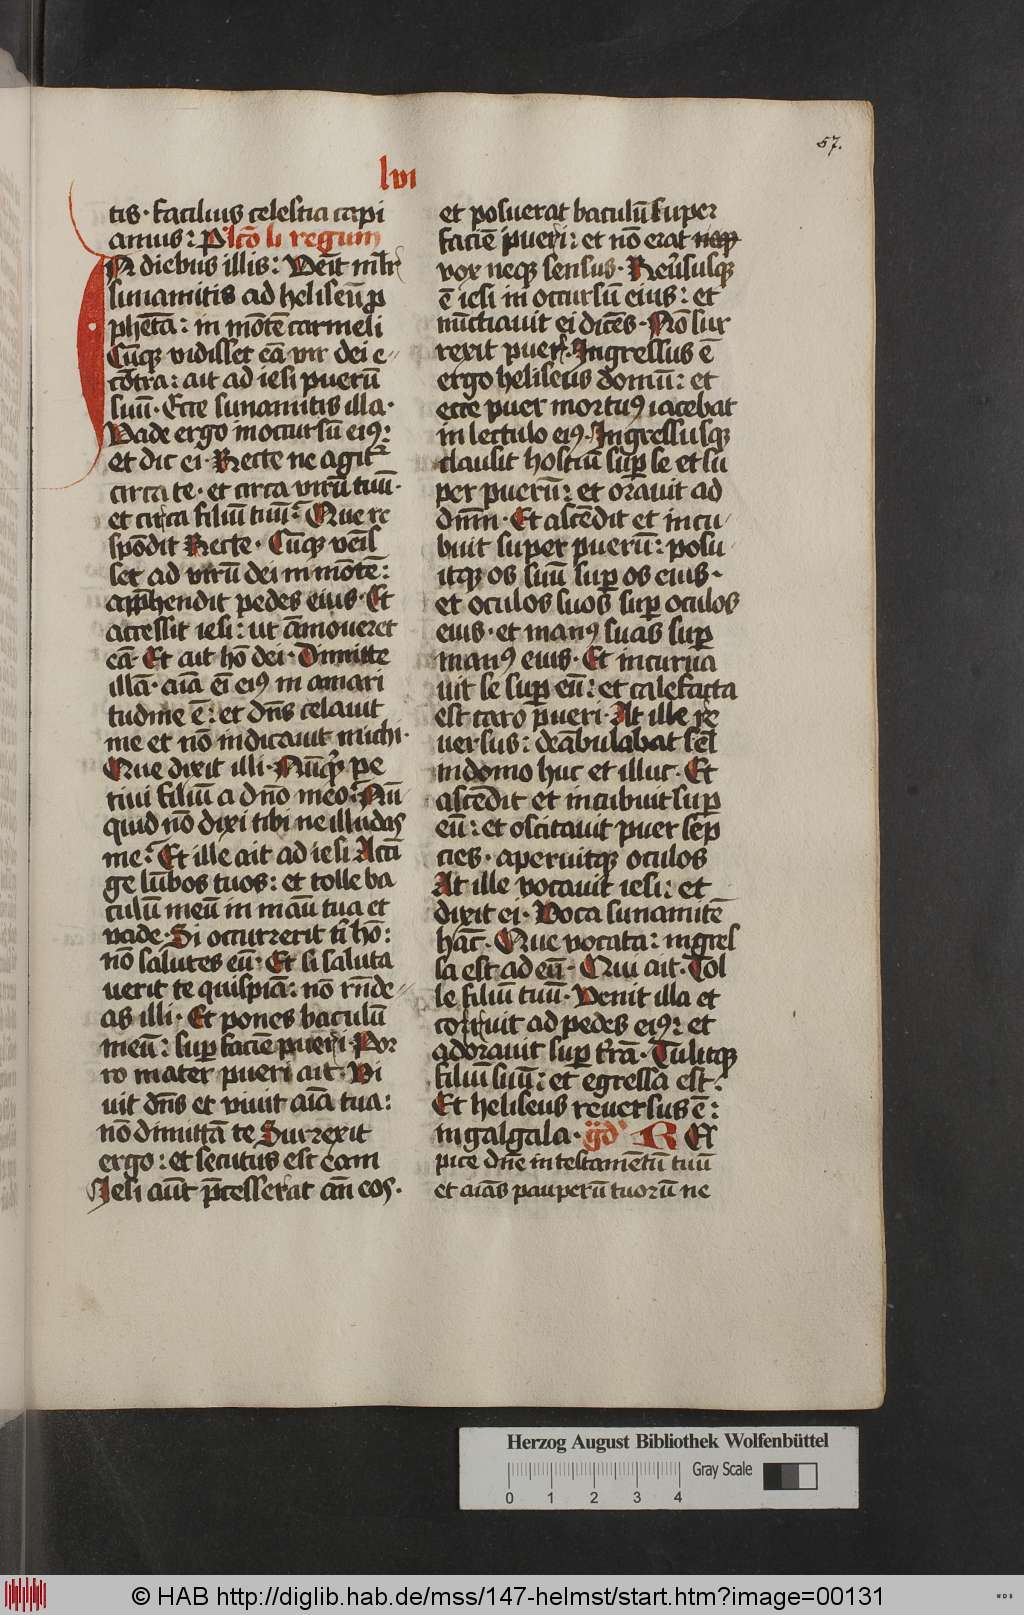 57.
lvi
tis · facilius celestia capi
amus : P lc̄o li regum
IN diebus illis : Veīt ml̄r
sunamitis ad heliseū p̲
phetā : in mōtē carmeli
Cūq̨ vidisset eā vir dei e
cōtra : ait ad iesi puerū
suū · Ecce sunamitis illa ·
Vade ergo in occursū eiꝰ :
et dic ei · Recte ne agit᷑
circa te · et circa virū tuū ·
et circa filiū tuū : Que re
spōdit Recte · Cūq̨ veīs
set ad virū dei in mōtē :
app̄hendit pedes eius · Et
accessit iesi : ut āmoueret
eā · Et ait hō dei · Dimitte
illā · aīa eī eiꝰ in amari
tudine ē : et dn̄s celauit
me et nō indicauit michi ·
Que dixit illi · Nūq̨ pe
tiui filiū a dn̄o meo : Nū
quid nō dixi tibi ne illudas
me : Et ille ait ad iesi Acci
ge lūbos tuos : et tolle ba
culū meū in māu tua et
vade · Si occurrerit t̄ hō :
nō salutes eū · Et si saluta
uerit te quispiā : nō rn̄de
as illi · Et pones baculū
meū : suꝑ faciē pueri · Por
ro mater pueri ait · Vi
uit dn̄s et viuit aīa tua :
nō dimittā te Surrexit
ergo : et secutus est eam
Iesi aūt p̄cesserat an̄ eos ·
et posuerat baculū super
faciē pueri : et nō erat neq̨
vox neq̨ sensus · Reūsusq̨
ē iesi in occursū eius : et
nūctiauit ei dicēs · Nō sur
rexit puer · Ingressus ē
ergo heliseus domū : et
ecce puer mortuꝰ iacebat
in lectulo eiꝰ · Ingressusq̨
clausit hostiū suꝑ se et su
per puerū : et orauit ad
dn̄m · Et ascēdit et incu
buit super puerū : posu
itq̨ os suū suꝑ os eius ·
et oculos suos suꝑ oculos
eius · et manꝰ suas suꝑ
manꝰ eius · Et incurua
uit se suꝑ eū : et calefacta
est caro pueri · At ille re
uersus : deābulabat sel̄
in domo huc et illuc · Et
ascēdit et incubuit suꝑ
eū : et oscitauit puer seꝑ
cies · aperuitq̨ oculos
At ille vocauit iesi : et
dixit ei · Voca sunamitē
hāc · Que vocata : ingres
sa est ad eū · Qui ait · Tol
le filiū tuū · Venit illa et
corruit ad pedes eiꝰ : et
adorauit suꝑ tr̄ā · Tulitq̨
filiū suū : et egressa est :
Et heliseus reuersus ē :
in galgala · gͣd R Res
pice dn̄e in testamētū tuū
et aīas pauperū tuorū ne
Herzog August Bibliothek Wolfenbüttel
Gray Scale
0 1 2 3 4
© HAB http://diglib.hab.de/mss/147-helmst/start.htm?image=00131